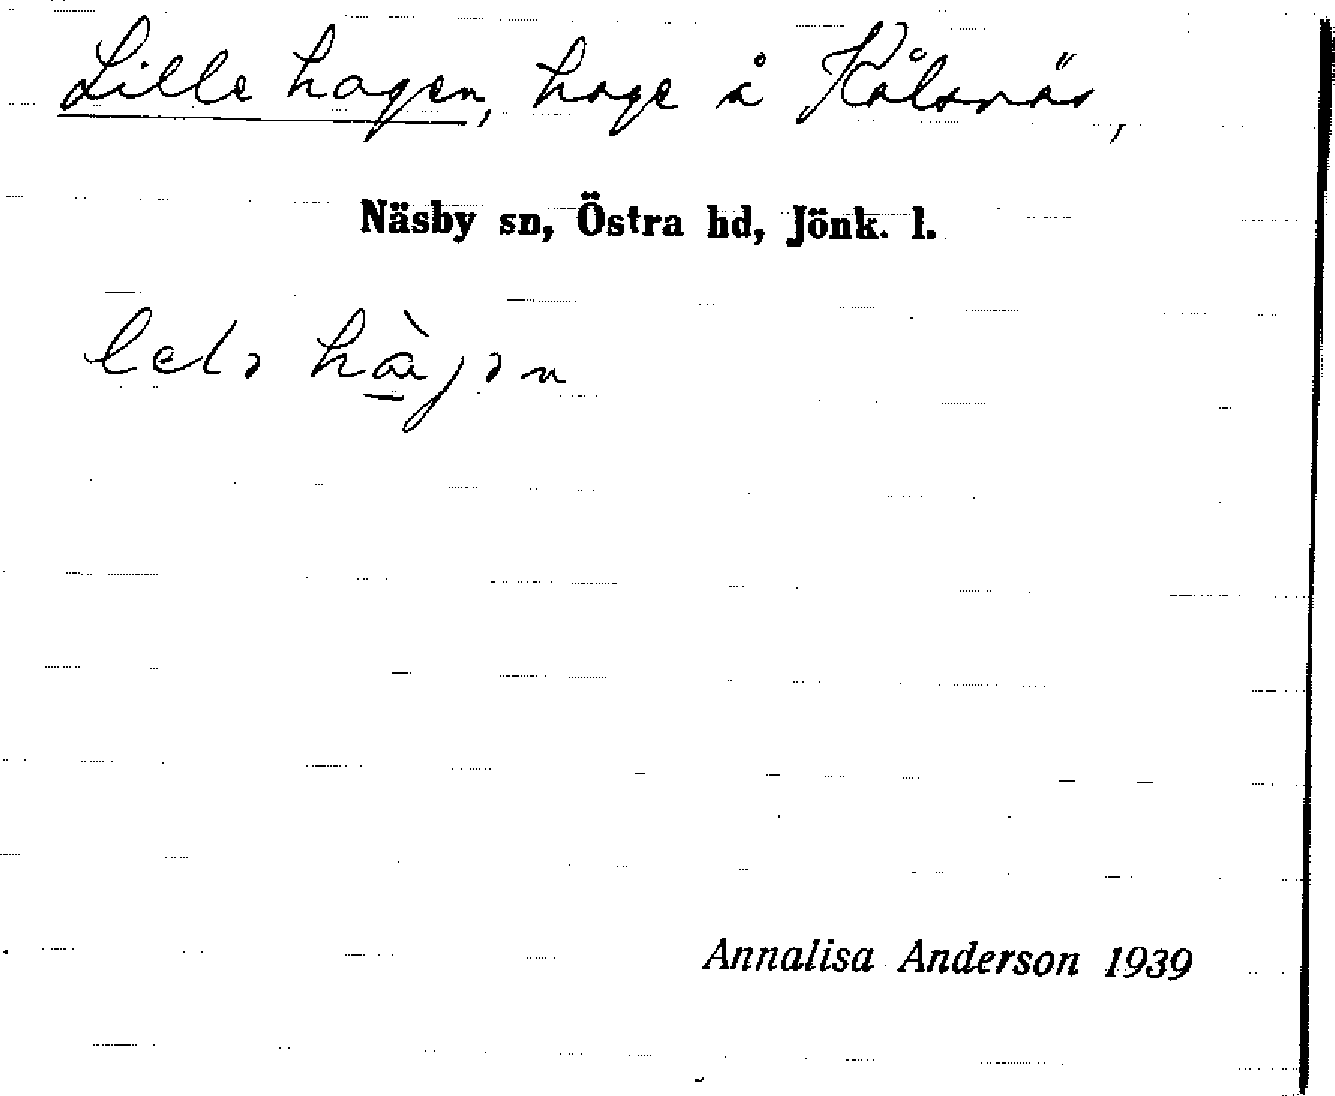 Lille hagen, hage å Kålsnäs,
Näsby sn, Östra hd, Jönk. l.
Annalisa Anderson 1939